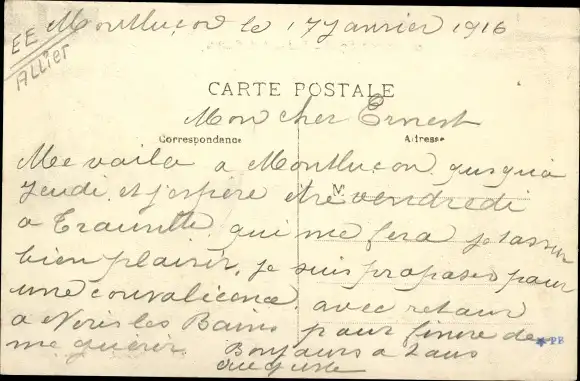 EE
Allier
Montluçon le 17 Janvier 1916
CARTE POSTALE
Mon cher Ernest
Correspondance
Adresse
Me voila a Montluçon jusqu'a
Jeudi et j'espère etre vendredi
M
a qui me fera je t'assure
bien plaisir, je suis proposer pour
une convalicence avec retour
a Neris les Bains pour finire de
me guerir Bonjours a tous
Auguste
PB